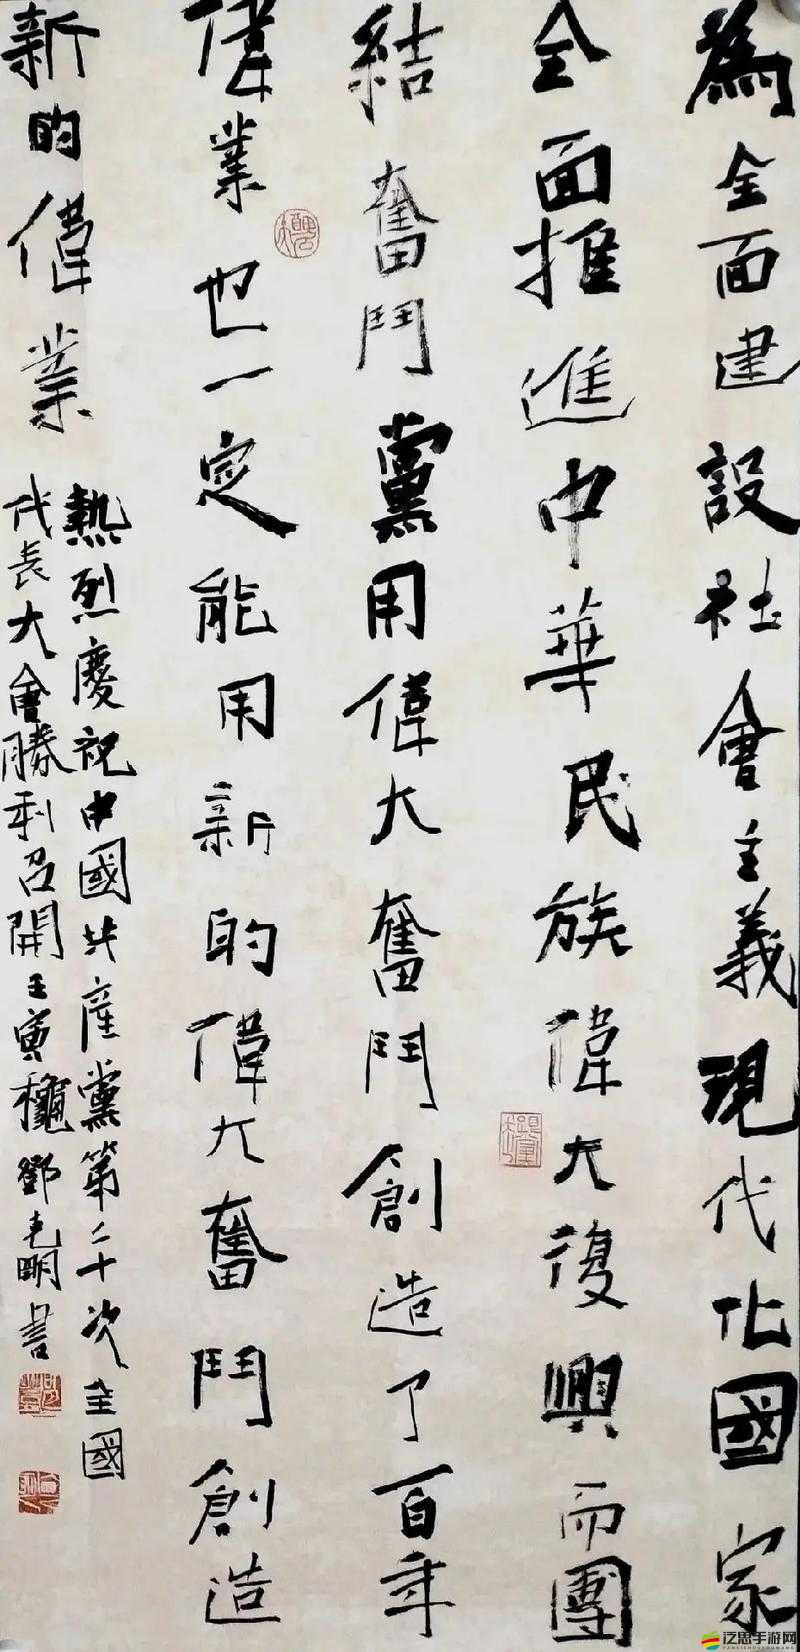 為全面建設社會主義現代化國家
全面推進中華民族偉大復興而團
結奮鬥黨用偉大奮鬥創造了百年
偉業也一定能用新的偉大奮鬥創造
新的偉業
熱烈慶祝中國共產黨第二十次全國
代表大會勝利召開壬寅龝鄧
明書
泛思手游网